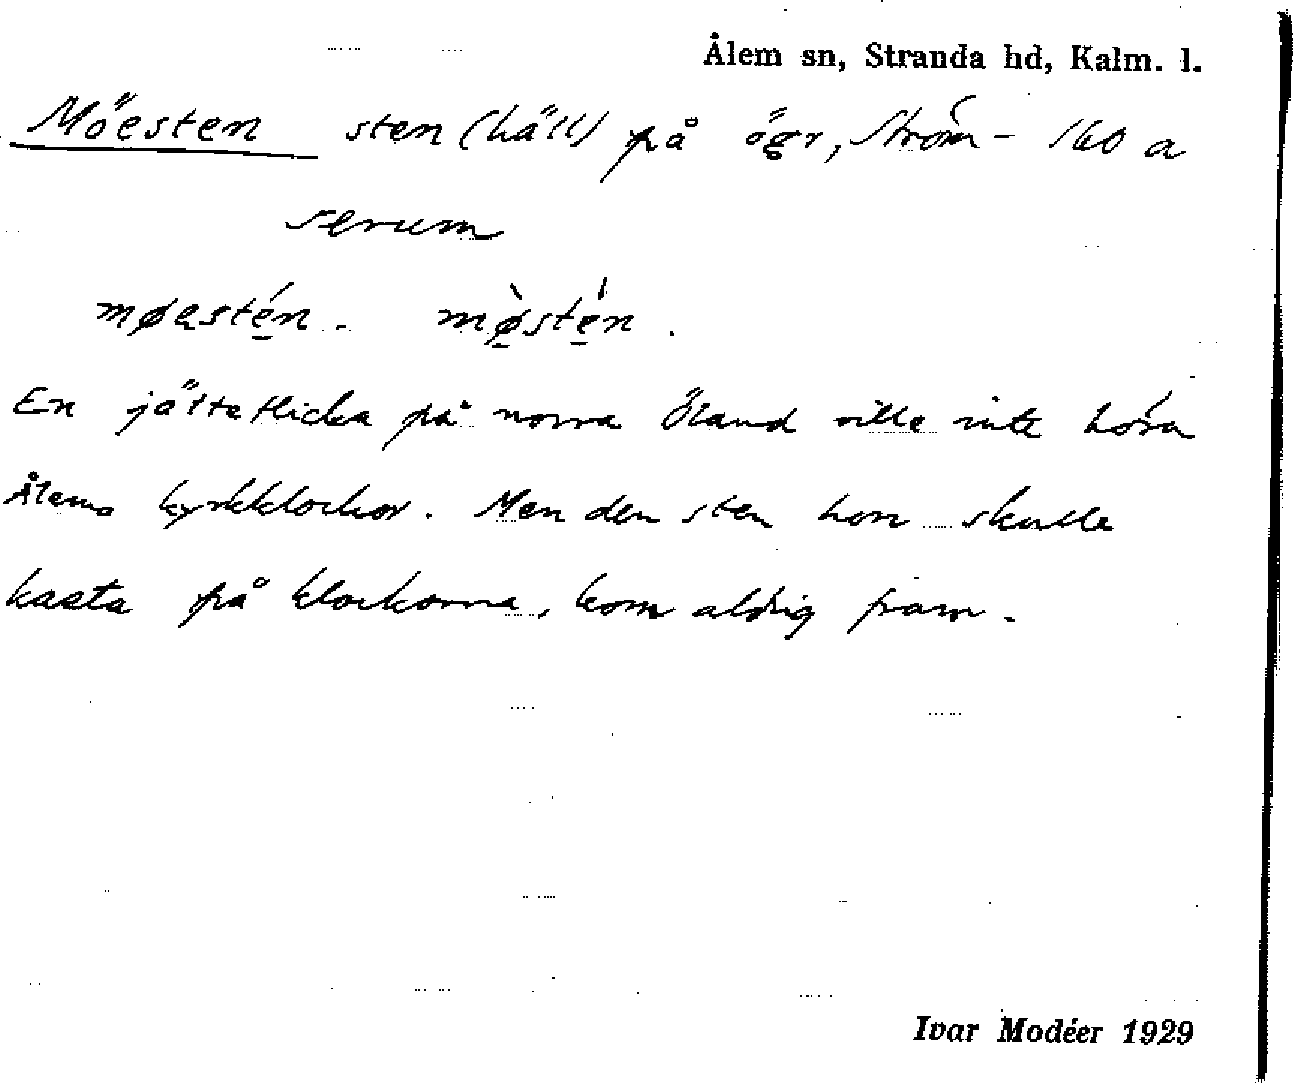 Ålem sn, Stranda hd, Kalm. l.
Möesten sten (häll) på ögr, Ström- 160 a
serum
møestén. mø̀stén.
En jätteflicka på norra Öland ville inte höra
Ålems kyrkklockor. Men den sten hon skulle
kasta på klockorna, kom aldrig fram.
Ivar Modéer 1929